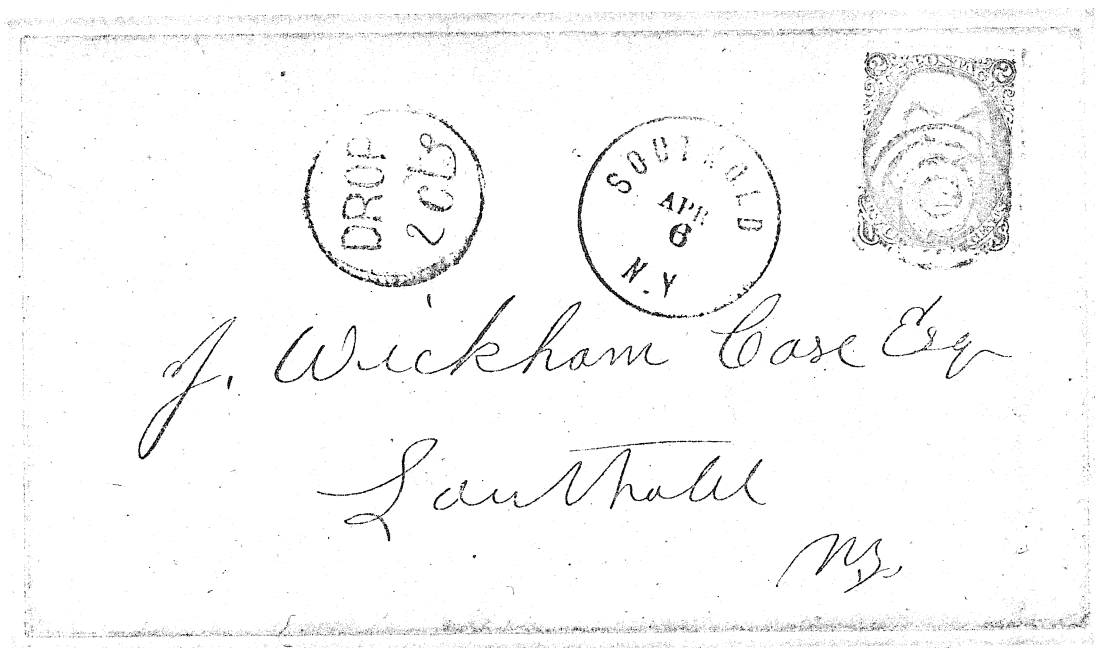 DROP
2 CTS
SOUTHOLD
APR
6
N.Y
J. Wickham Case Esq
Southold
N.Y.